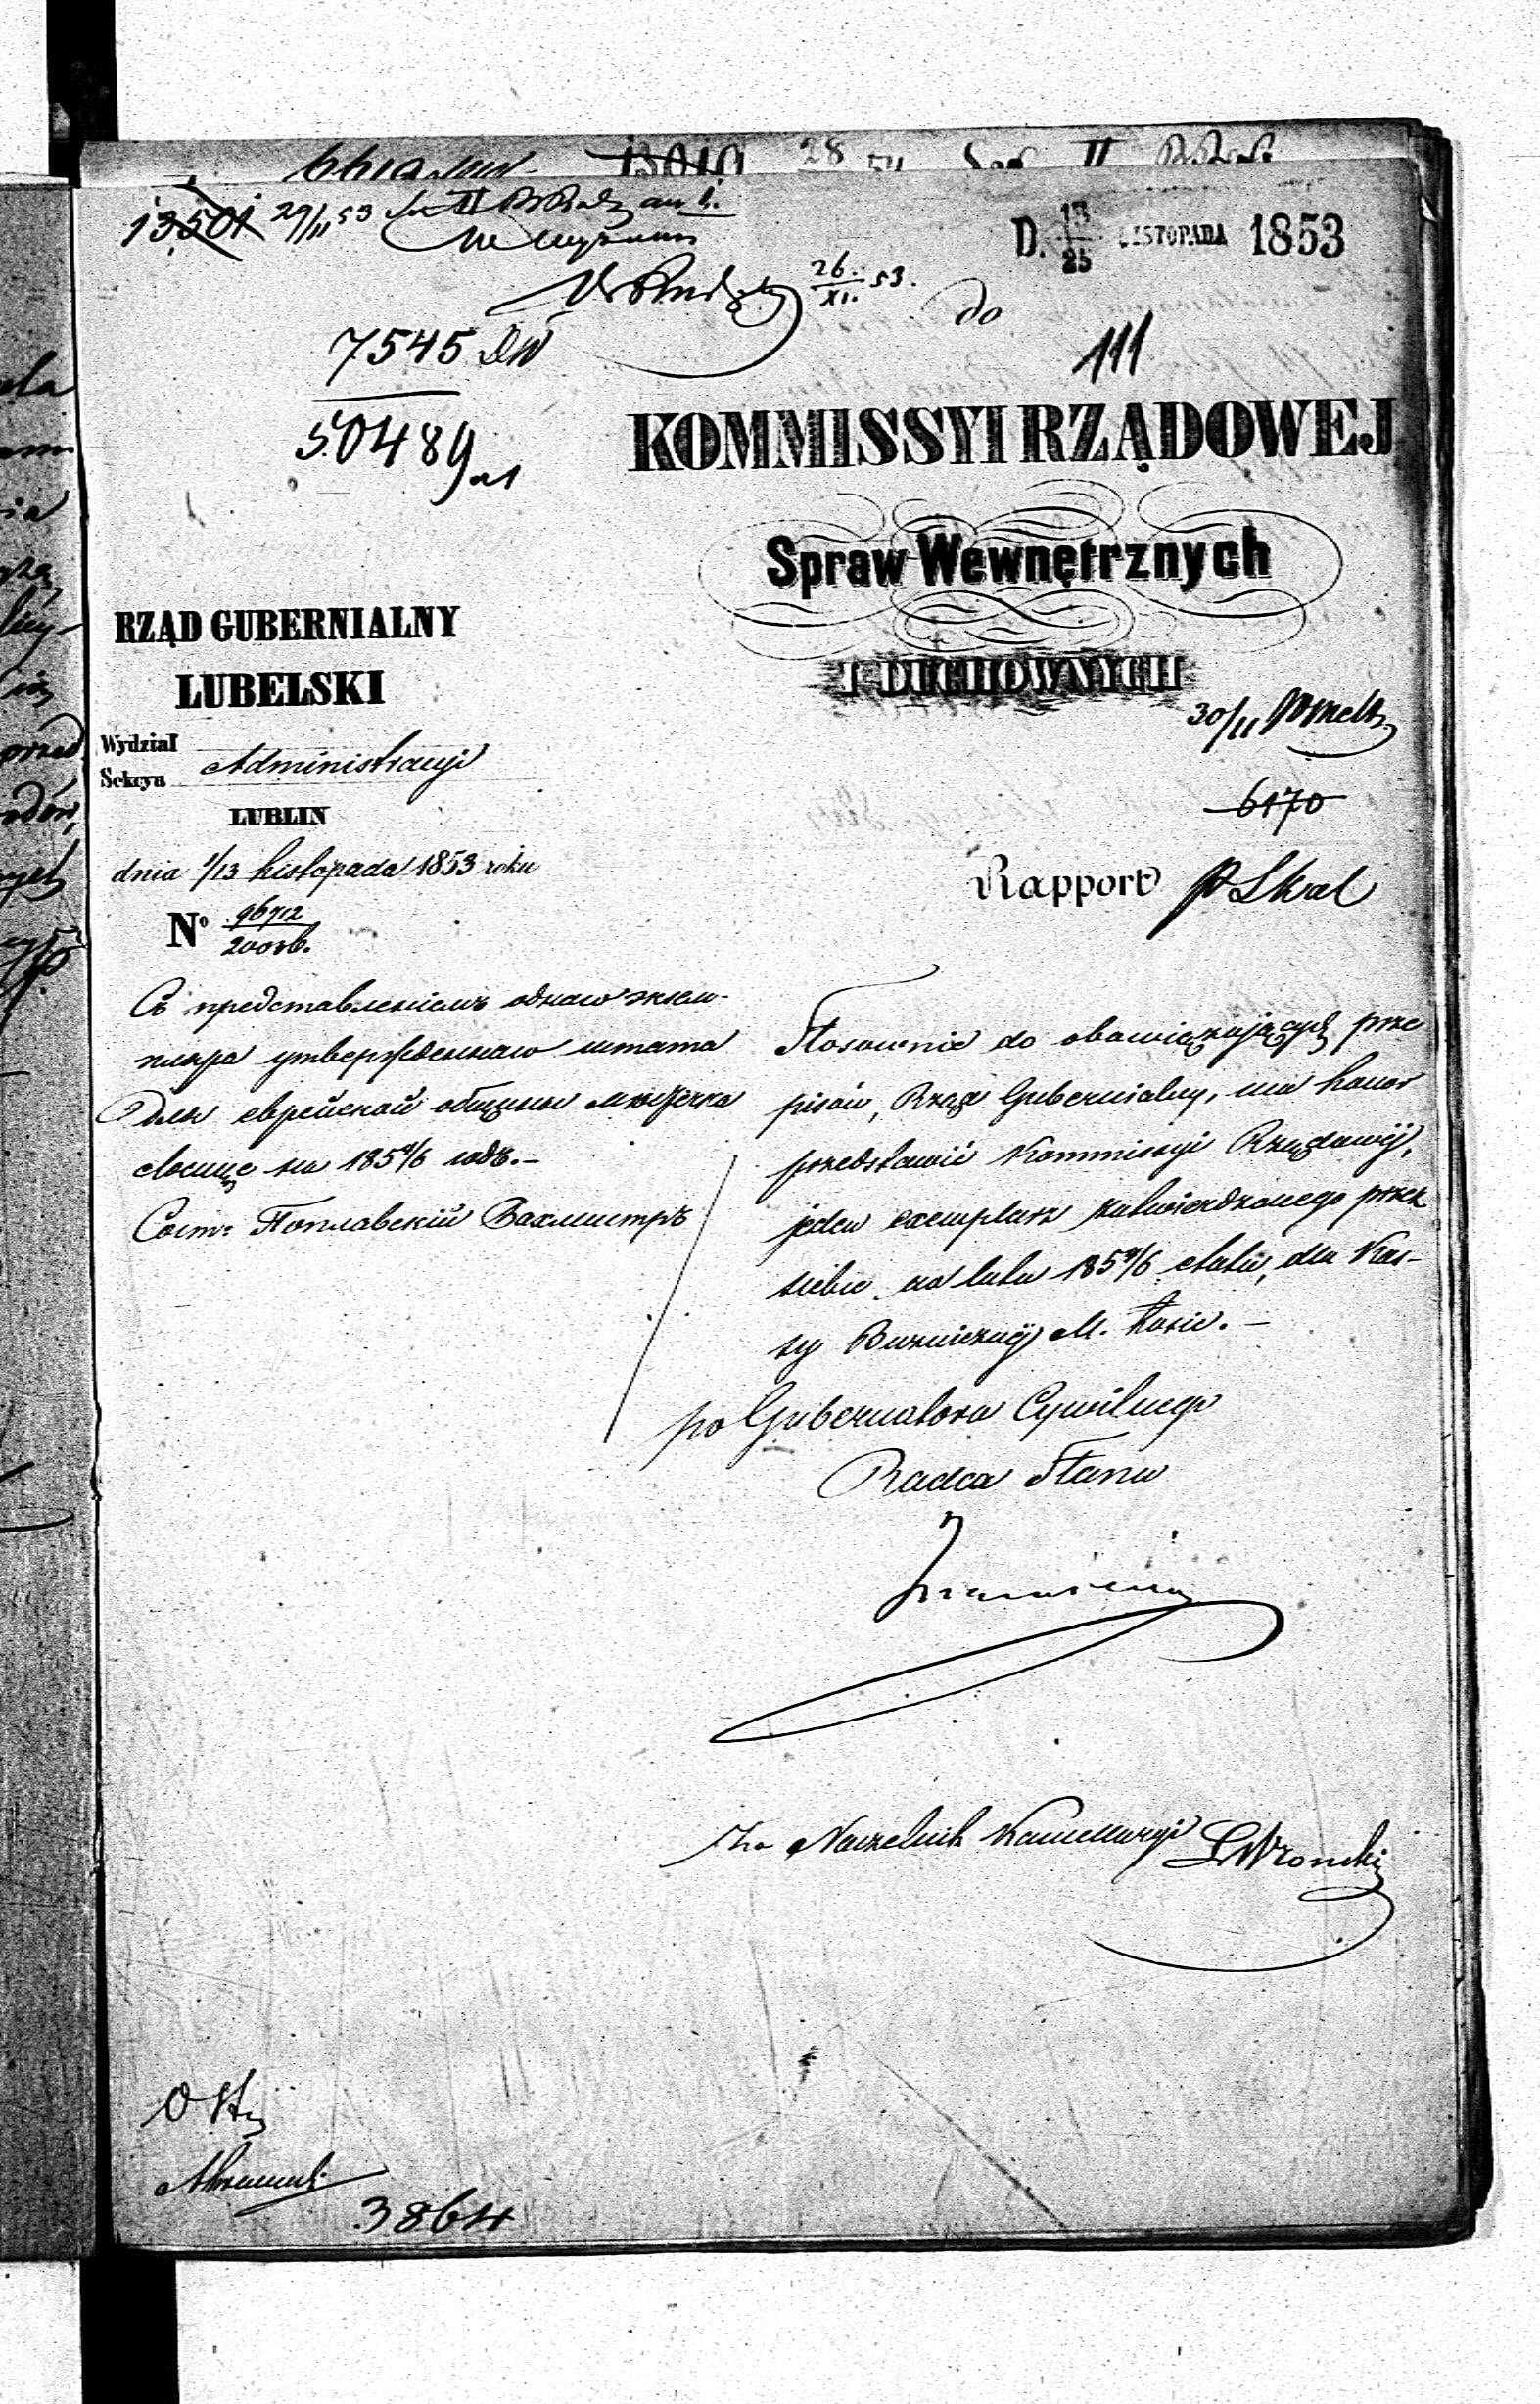 13010 28 II
13501 29/11 53
26/XI. 53.
D. 13/25 LISTOPADA 1853
do
111
7545
50489
KOMMISSYI RZĄDOWEJ
Spraw Wewnętrznych
I DUCHOWNYCH
RZĄD GUBERNIALNY
LUBELSKI
Wydział
Sekcya
Administracyi
LUBLIN
dnia 1/13 Listopada 1853 roku
No 96712
30/11
6170
Rapport
Съ представленіемъ однаго экзем-
пляра утвержденнаго штата
для еврейской общины мѣстечка
Лосице на 1854/6 годъ.-
Сост: Поплавскій Вахмистръ
Stosownie do obowiązujących prze
pisów, Rząd Gubernialny, ma honor
przedstawić Kommissyi Rządowéj,
jeden exemplarz zatwierdzonego przez
siebie na lata 1854/6 etatu, dla Kas-
sy Bużnicznéj M. Łosic.-
po Gubernatora Cywilnego
Radca Stanu
Naczelnik Kancellaryi Wronski
3864